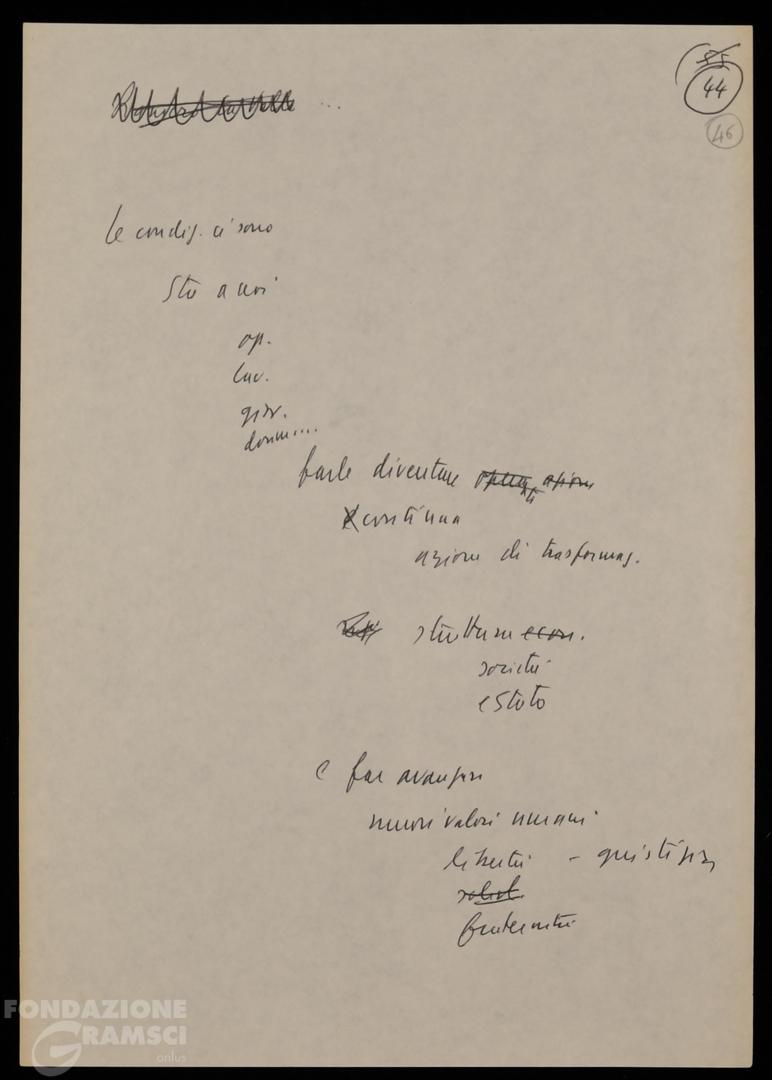 55
44
46
...
Le condiz. ci sono
Sta a noi
op.
lav.
giov.
donne...
farle diventare azione
continua
azione di trasformaz.
strutture econ.
società
e Stato
e far avanzare
nuovi valori umani
libertà - giustizia,
solid.
fraternità
FONDAZIONE
GRAMSCI
onlus